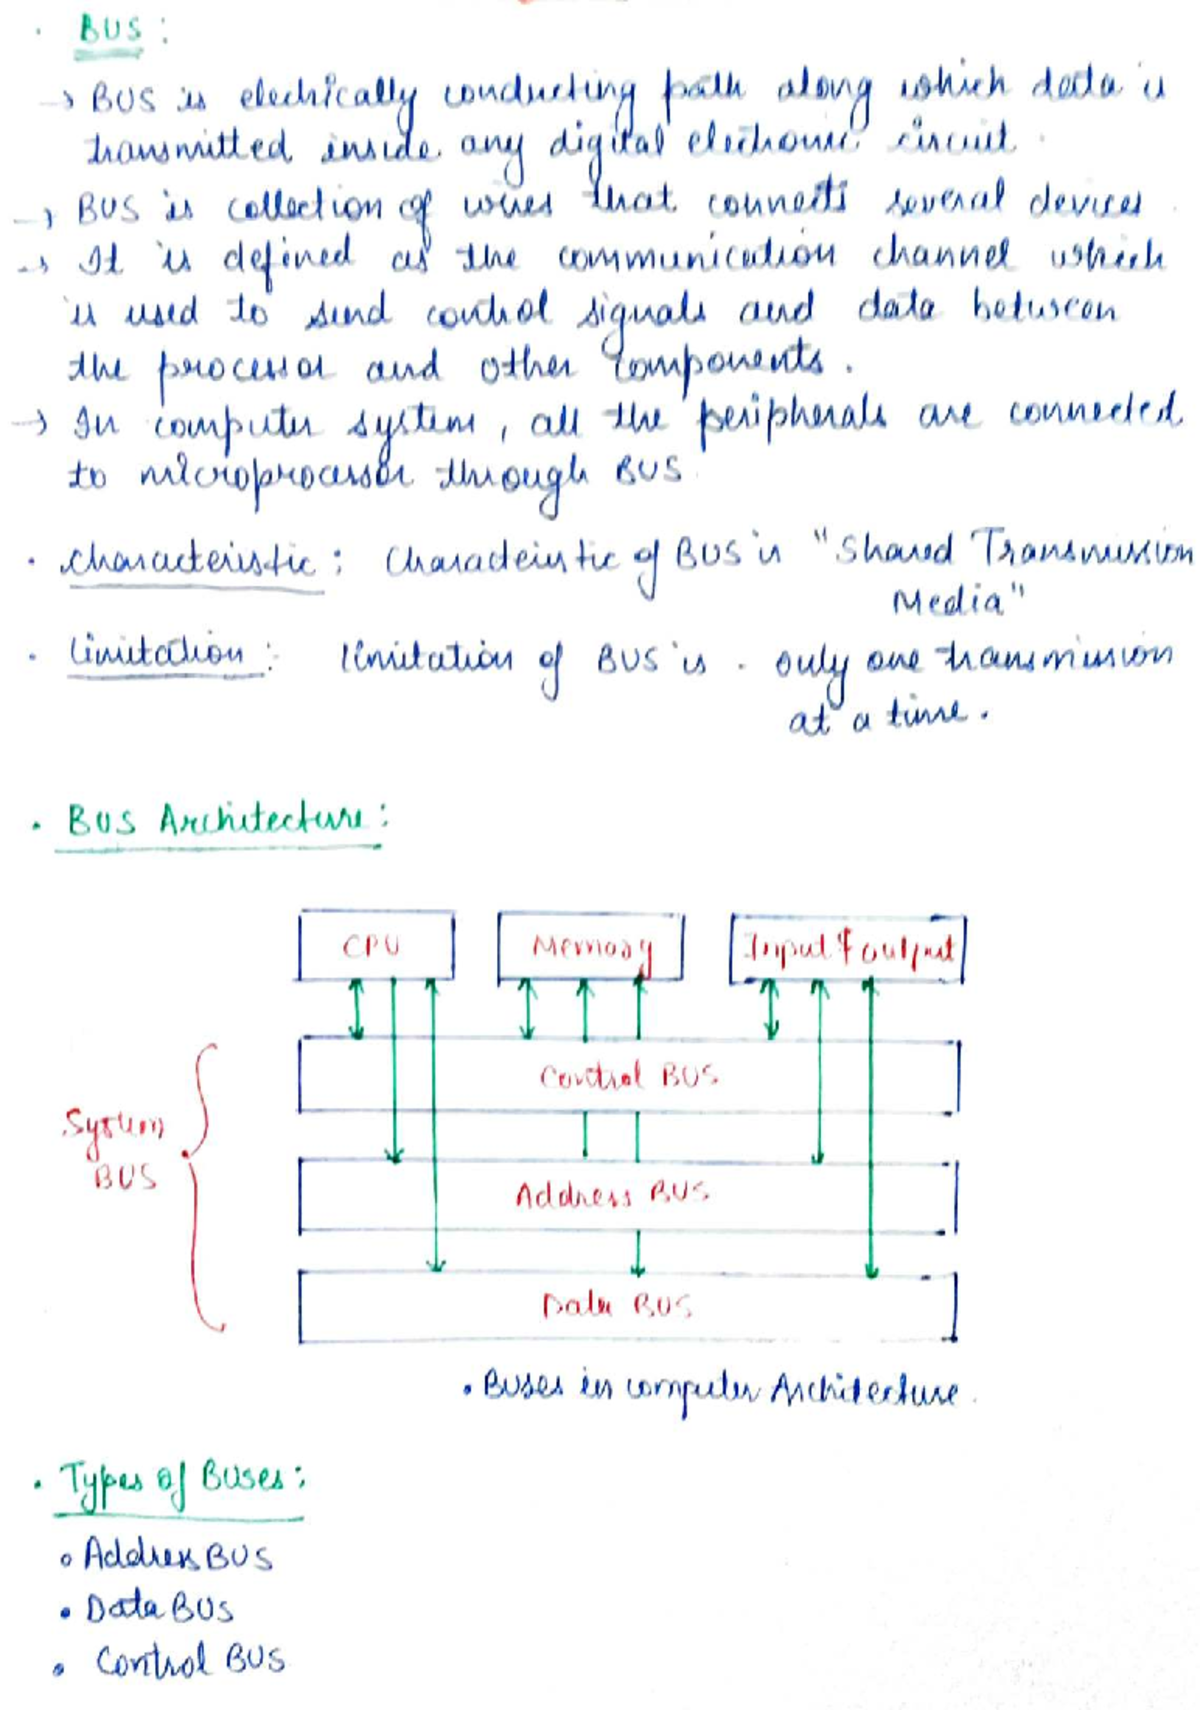 · BUS :
→ BUS is electrically conducting path along which data is
transmitted inside any digital electronic circuit.
→ BUS is collection of wires that connects several devices.
→ It is defined as the communication channel which
is used to send control signals and data between
the processor and other components.
→ In computer system, all the peripherals are connected
to microprocessor through BUS.
· Characteristic : Characteristic of BUS is "Shared Transmission
Media"
· Limitation : limitation of BUS is · only one transmission
at a time.
· BUS Architecture :
CPU
Memory
Input & output
Control BUS
System
BUS
Address BUS
Data BUS
• Buses in computer Architecture.
· Types of Buses :
• Address BUS
• Data BUS
• Control BUS